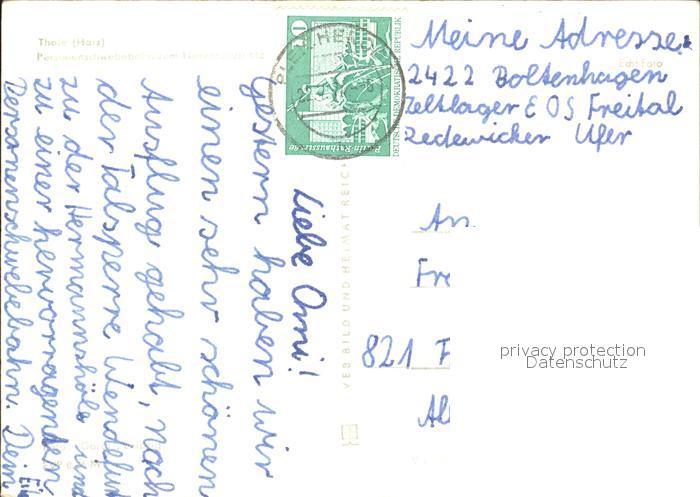 Thale (Harz)
Personenschwebebahn zum
Echt Foto
10
DEUTSCHE DEMOKRATISCHE REPUBLIK
Berlin-Rathausstrasse
Meine Adresse:
2422 Boltenhagen
Zeltlager EOS Freital
Redewicker Ufer
An
Fre
821 F
Al
privacy protection
Datenschutz
VEB BILD UND HEIMAT REICH
Liebe Omi!
Gestern haben wir
einen sehr schönen
Ausflug gehabt, nach
der Talsperre Wendefurt
zu der Hermannshöle und
zu einer hervorragenden
Personenschwebebahn. Dein